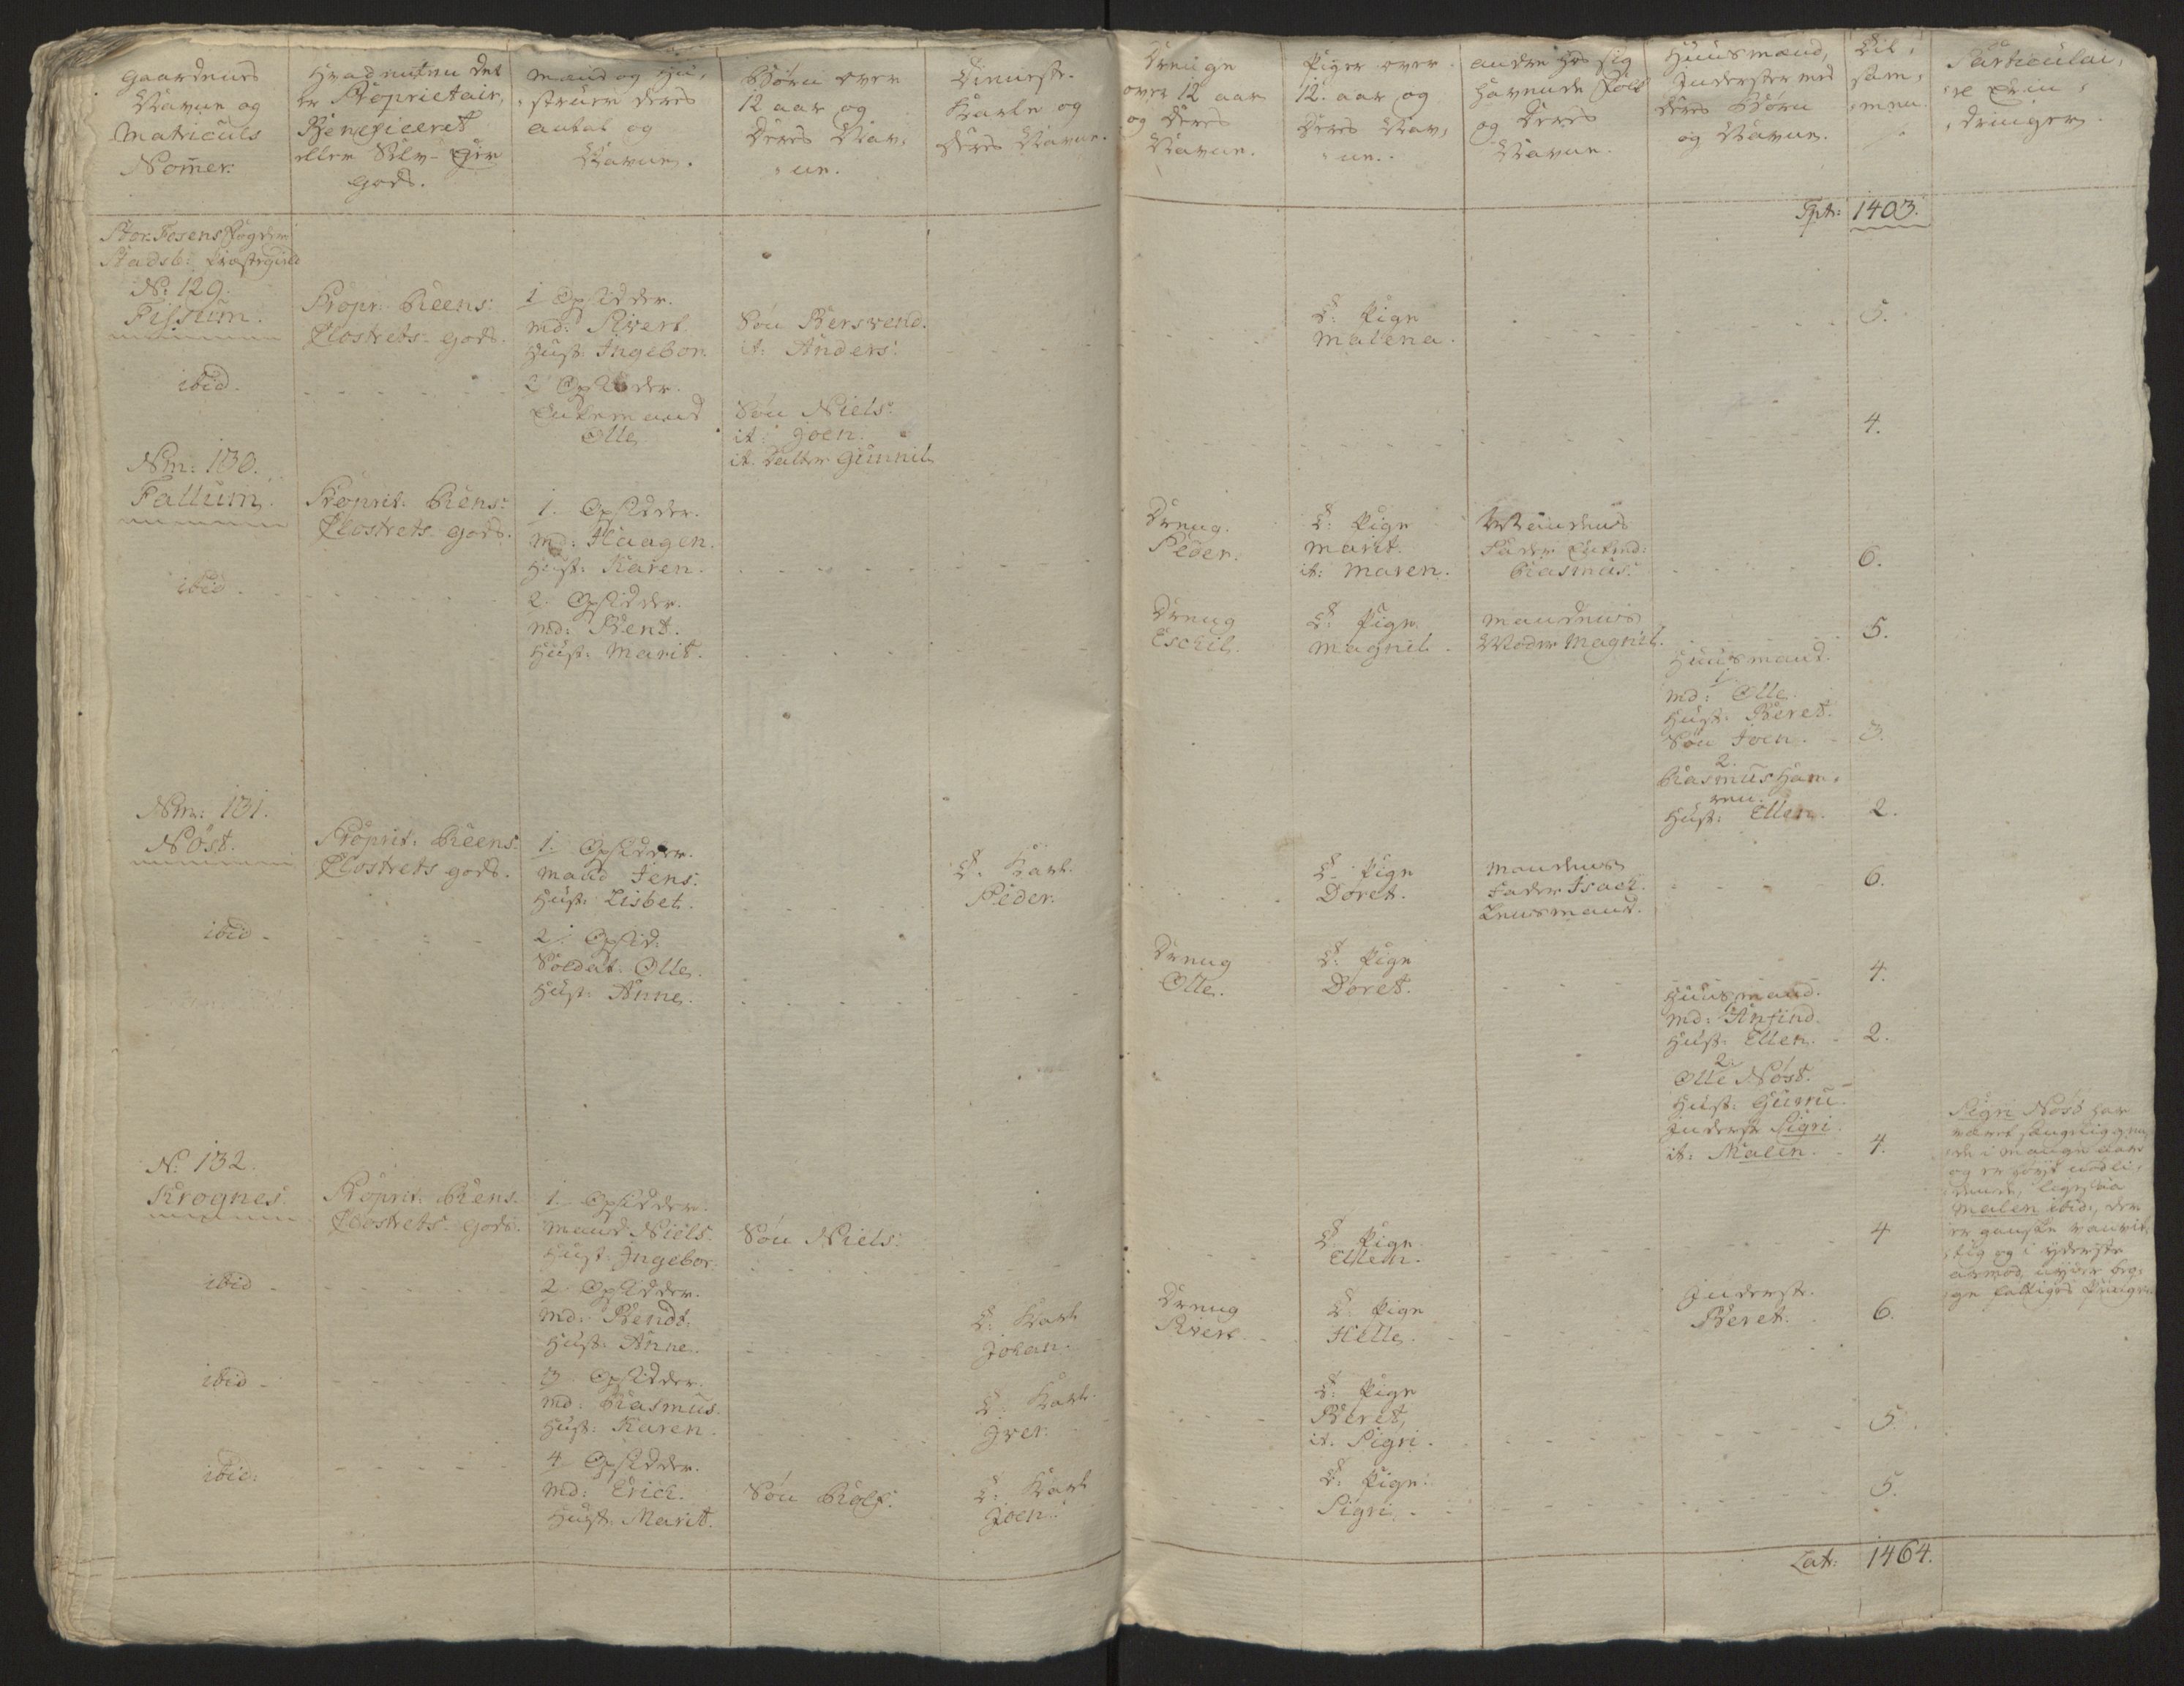 Gaardenes
Navne og
Matriculs
Nom̄er.
Hvad enten det
er Proprietair,
Beneficeret
eller Selv-Eier
gods.
Mænd og Hu-
struer deres
antal og
Navne.
Børn over
12 aar og
deres Nav-
ne.
Tieneste
Karle og
deres Navne.
Drenge
over 12 aar
og deres
Navne.
Piger over
12. aar og
deres Nav-
ne.
andre hos sig
havende Folk
og deres
Navne.
Huusmænd,
Inderster med
deres Børn
og Navne.
Til-
sam-
men.
Particulai-
re Erin-
dringer.
Tpt: 1403.
Stor Fosens Fogderi
Stadsb: Præstegield
No: 129.
Fissum.
Propr. Reens:
Closters gods.
1 Opsidder.
Md: Sivert.
Hust: Ingebor.
Søn Bersvend.
it: Anders.
T: Pige
Malena.
5.
ibid.
2 Opsidder.
Enkemand
Olle
Søn Niels:
it: Joen.
it. Datter Gunnil
4.
Nm: 130.
Fallum.
Proprit: Rens:
Closters gods.
1. Opsidder.
Md: Haagen.
Hust: Karen.
Dreng.
Peder.
T: Pige
Marit.
it: Maren.
Mandens
Fader Enkmd:
Rasmus.
6.
ibid.
2. Opsidder.
Md: Bent.
Hust: Marit.
Dreng
Eschil.
T: Pige
Magnil.
Mandens
Moder Magnil.
5.
Huusmand.
1.
Md: Olle.
Hust: Beret.
Søn Joen. 3.
2.
Rasmus Ham-
ren.
Hust: Ellen. 2.
Nm: 131.
Nöst.
Proprit: Reens.
Closters gods.
1. Opsidder.
Mand Jens.
Hust: Lisbet.
T. Karl.
Peder.
T. Pige
Doret.
Mandens
Fader Isach.
Lensmand.
6.
ibid.
2. Opsid:
Soldat. Olle.
Hust: Anne.
Dreng
Olle.
T: Pige
Doret.
4.
Huusmand.
Md: Anfind.
Hust: Ellen. 2.
2.
Olle Nöst.
Hust: Guru.
Inderste Sigri.
it: Malen. 4.
Sigri Nöst har
været sengeliggen-
de i mange aar
og er høyst nødli-
dende, ligesaa
Malen ibid:, der
er ganske vanvit-
tig og i yderste
armod, nyder beg-
ge fattiges Penge.
N. 132.
Krognes.
Proprit: Rens.
Closters gods.
1. Opsidder.
Mand Niels.
Hust: Ingebor.
Søn Niels.
T. Pige
Ellen.
4
ibid
2 Opsidder.
Md: Bendt.
Hust: Anne.
T: Karl
Johan.
Dreng
Sivert
T: Pige
Helle.
Inderste.
Beret.
6.
ibid
3 Opsidder.
Md: Rasmus.
Hust: Karen.
T: Karl.
Iver.
T: Pige
Beret,
it. Sigri.
5.
ibid:
4 Opsidder.
Md: Erich.
Hust: Marit.
Søn Rolf.
T: Karl
Joen.
T: Pige.
Sigri.
5.
Lat: 1464.